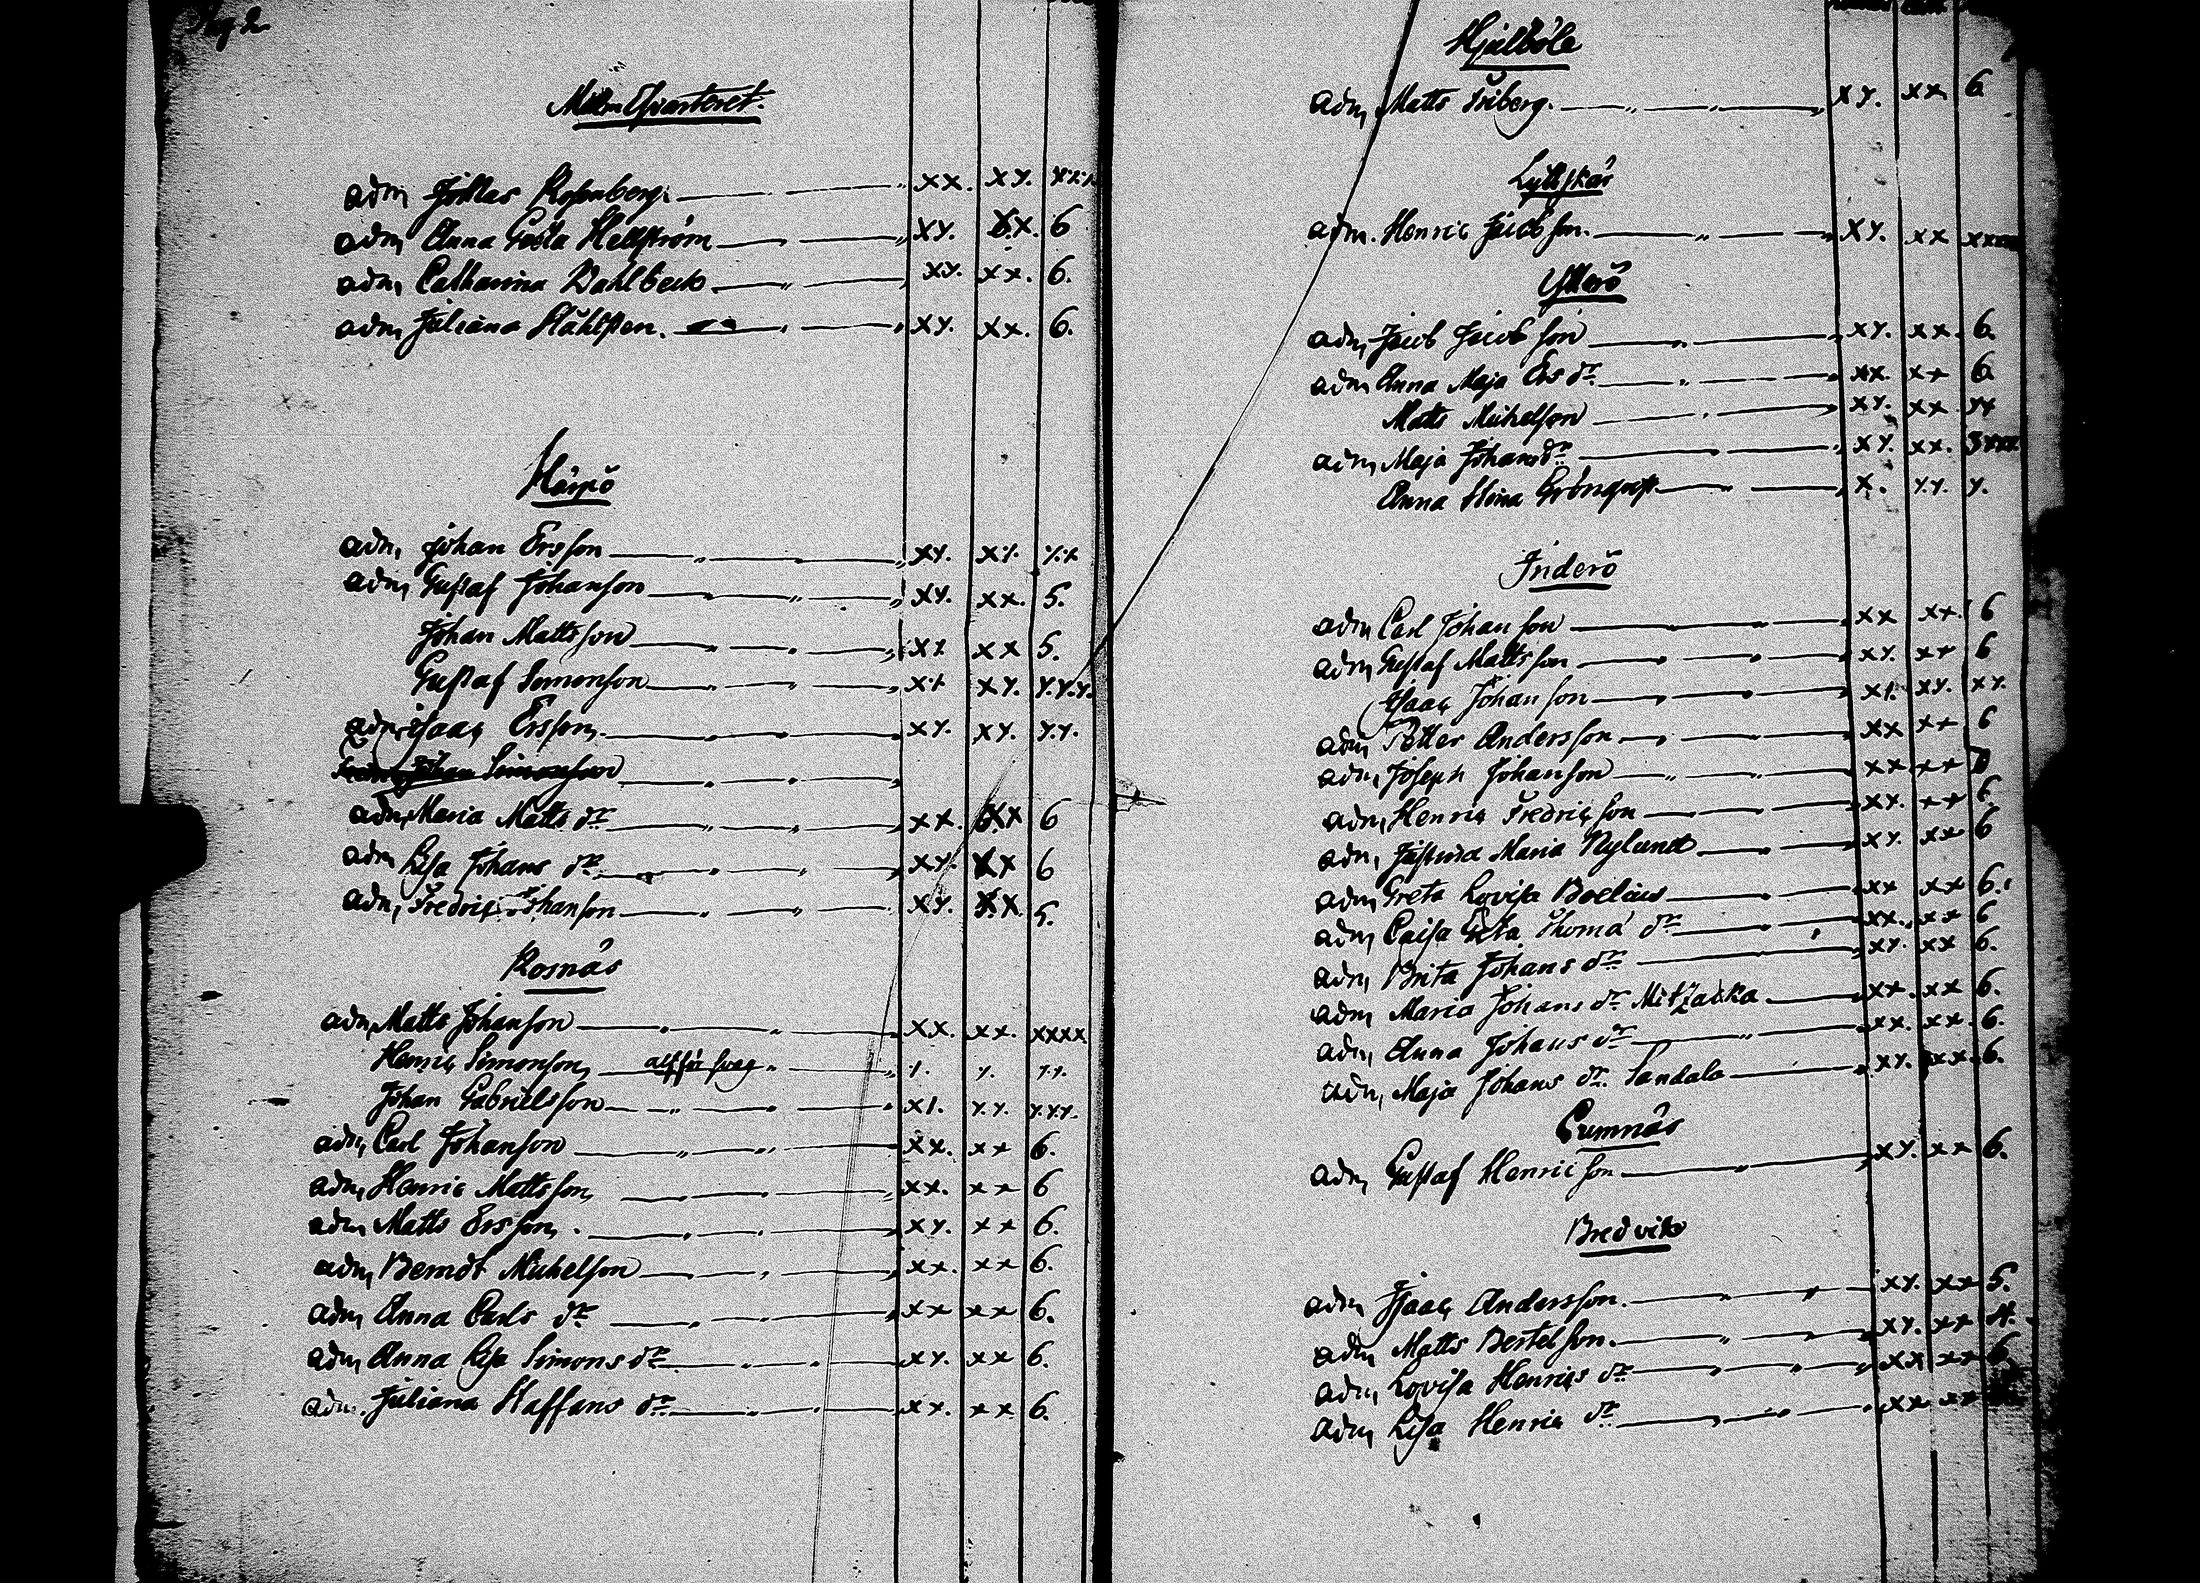 Pag. 2
Qvarteret.
adm Rosenberg xx. xy.
adm Anna Greta Hellström xy. xx. 6
adm Catharina Dahlbeck xy. xx. 6.
adm Juliana Ståhlsten. xy. xx. 6.
adm Johan Ersson xy. xy.
adm Gustaf Johanson xy. xx. 5.
Johan Mattsson xx 5.
Gustaf Simonson xy. y.y.y.
adm Isaac Ersson xy. xy. y.y.
Johan Simonsson
adm Maria Matts dr xx. xx 6
adm Lisa Johans dr xy. xx 6
adm Fredric Johanson xy. xx 5.
Rosnäs
adm Matts Johanson xx. xx. xxxx
Henric Simonson
Johan Gabrielsson y.y. y.y.y.
adm Carl Johanson xx. xx 6.
adm Henric Mattsson xx. xx 6
adm Matts Ersson. xy. xx 6.
adm Berndt Michelson xx. xx 6.
adm Anna Carls dr xx xx 6.
adm Anna Lisa Simons dr xy. xx 6.
adm. Juliana Staffans dr xx. xx 6.
Hjälböle
adm Matts Friberg. xy. xx 6
Lyttskär
adm. Henric Jacobson. xy. xx
Ytterö
adm Jacob Jacobson xy. xx. 6.
adm Anna Maja Ers dr xx. xx 6
Matts Michelson xy. xx. yx
adm Maja Johans dr xy. xx.
Anna Stina Grönqvist x. y.y. y.
Inderö
adm Carl Johanson xx xx. 6
adm Gustaf Mattsson xy. xx 6
Isaac Johanson xy. xy.
adm Petter Andersson xx xx 6
adm Joseph Johanson xx xx
adm Henric Fredricson xy. xx 6.
adm Justina Maria Nylund xy. xx 6
adm Greta Lovisa Boelius xx xx 6.
adm Caisa Greta Thoma dr xx. xx 6
adm Brita Johans dr xy. xx 6.
adm Maria Johans dr xx. xx 6.
adm Anna Johans dr xx. xx. 6.
adm Maja Johans dr. Sandala xy. xx. 6.
Cumnäs
adm Gustaf Henricson xy. xx 6.
Bredvik
adm Isaac Andersson. xy. xx 5.
adm Matts Bertelson. xy. xx 4.
adm Lovisa Henrics dr xx xx 6
adm Lisa Henric dr xx xx